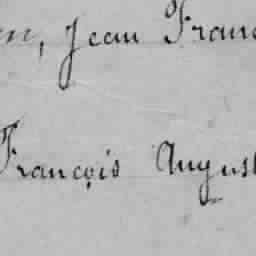 en, Jean Franc
François August